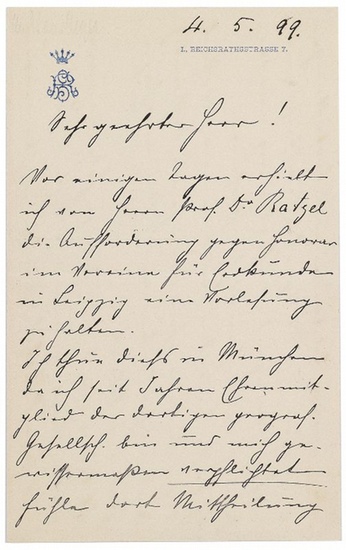 4. 5. 99.
I., REICHSRATHSSTRASSE 7.
Sehr geehrter Herr!
Vor einigen Tagen erhielt
ich von Herrn Prof. Dr Ratzel
die Aufforderung gegen Honorar
im Vereine für Erdkunde
in Leipzig eine Vorlesung
zu halten.
Ich thue diess in München
da ich seit Jahren Ehrenmit-
glied der dortigen geograf.
Gesellsch. bin und mich ge-
wissermaßen verpflichtet
fühle dort Mittheilung